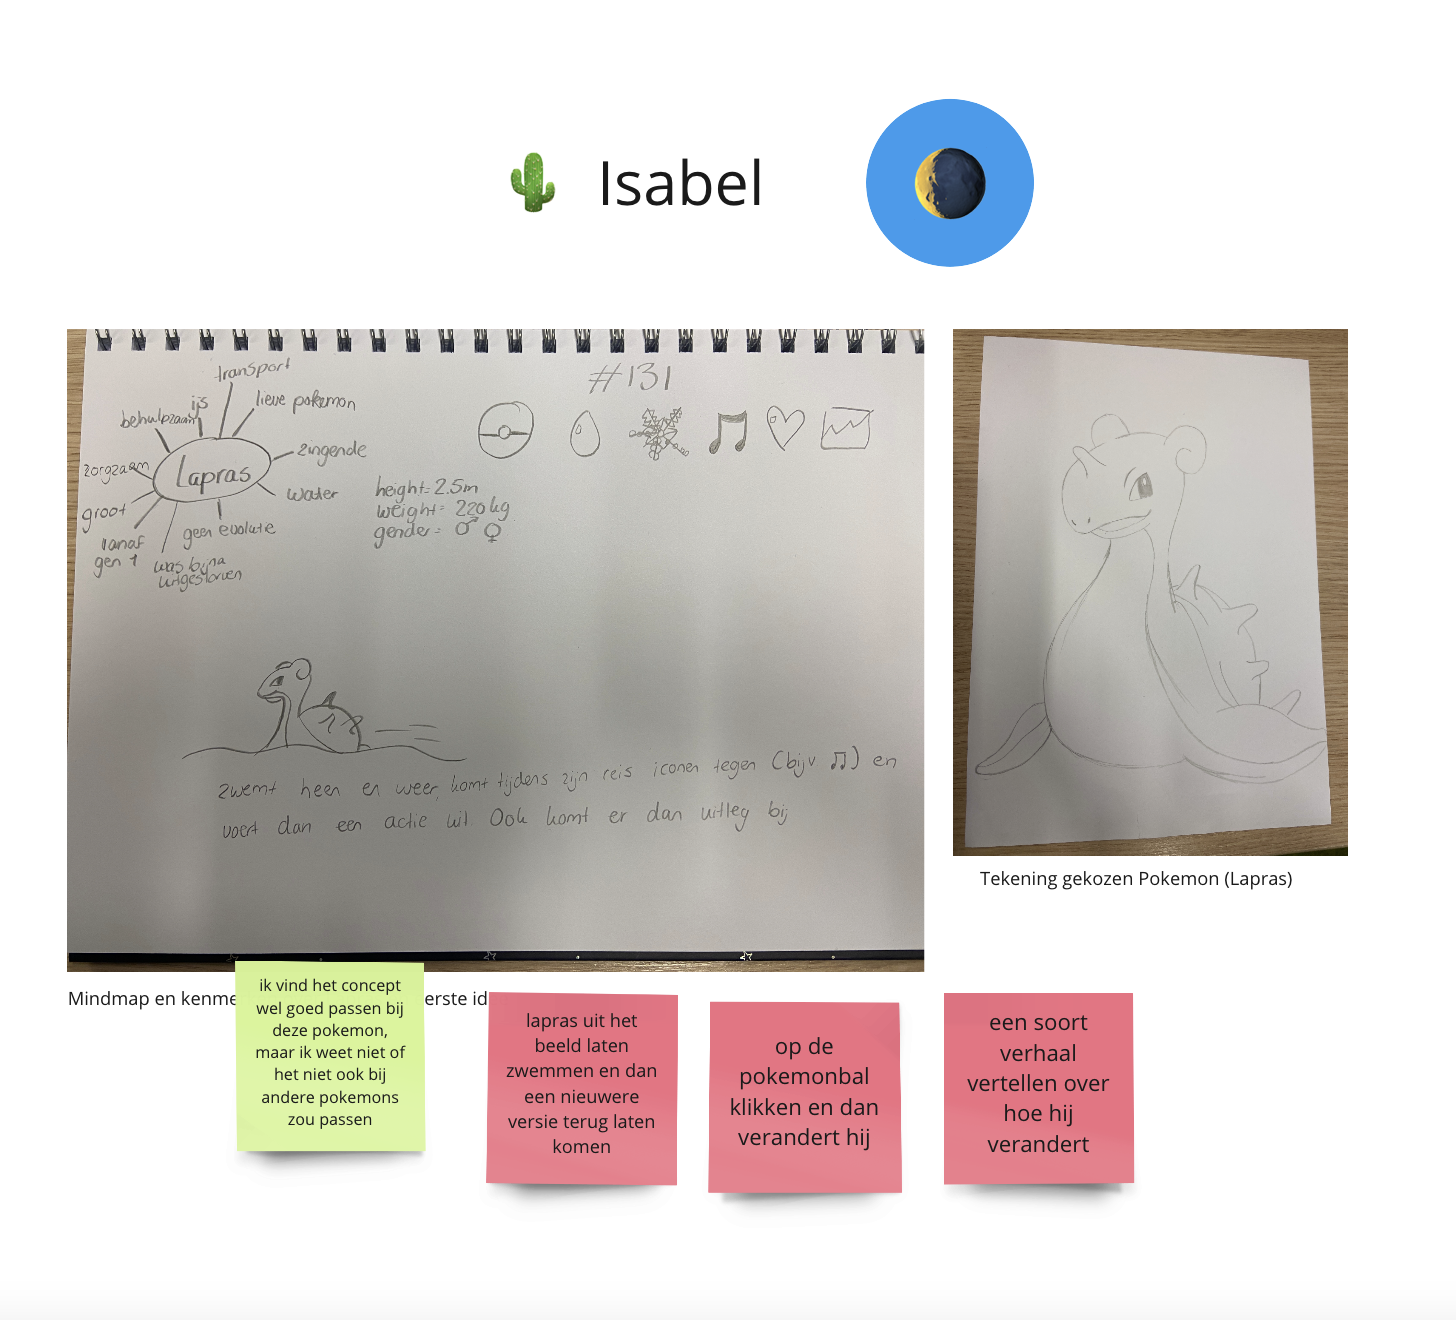 Isabel
transport
ijs
lieve pokemon
behulpzaam
zingende
zorgzaam
Lapras
water
groot
geen evolutie
vanaf
gen 1
was bijna
uitgestorven
#131
height= 2.5m
weight= 220 kg
gender= ♂ ♀
zwemt heen en weer, komt tijdens zijn reis iconen tegen (bijv ♫) en
voert dan een actie uit. Ook komt er dan uitleg bij
Tekening gekozen Pokemon (Lapras)
Mindmap en kenme
erste id
ik vind het concept
wel goed passen bij
deze pokemon,
maar ik weet niet of
het niet ook bij
andere pokemons
zou passen
lapras uit het
beeld laten
zwemmen en dan
een nieuwere
versie terug laten
komen
op de
pokemonbal
klikken en dan
verandert hij
een soort
verhaal
vertellen over
hoe hij
verandert